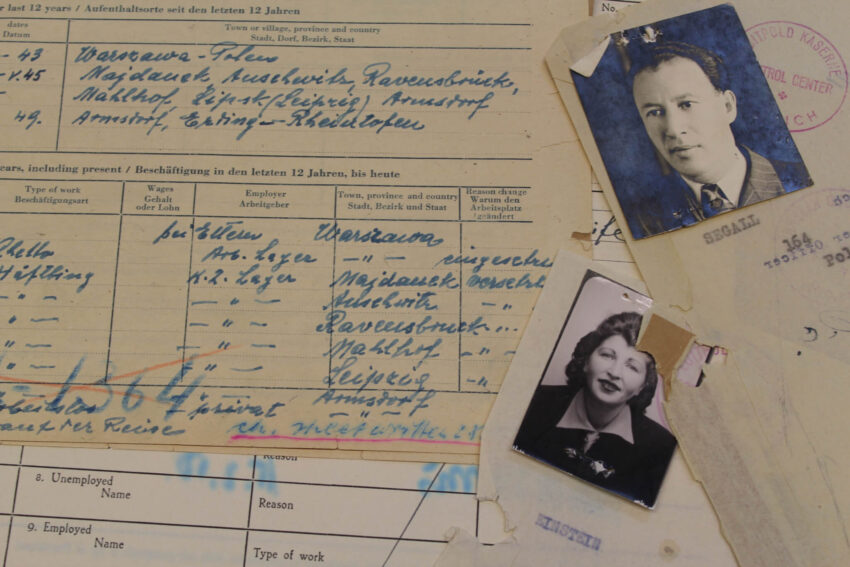 r last 12 years / Aufenthaltsorte seit den letzten 12 Jahren
dates
Datum
Town or village, province and country
Stadt, Dorf, Bezirk, Staat
- 43 Warszawa - Polen
- V. 45 Majdanek, Auschwitz, Ravensbrück,
Mahlhof, Lipsk (Leipzig) Armsdorf
49. Armsdorf, Erding - Rheinhofen
ears, including present / Beschäftigung in den letzten 12 Jahren, bis heute
Type of work
Beschäftigungsart
Wages
Gehalt
oder Lohn
Employer
Arbeitgeber
Town, province and country
Stadt, Bezirk und Staat
Reason change
Warum den
Arbeitsplatz
geändert
bei Eltern Warszawa
Ghetto Arb. Lager - " -
Häftling K.Z. Lager Majdanek versetzt
- " - - " - Auschwitz - " -
- " - - " - Ravensbrück - " -
- " - - " - Mahlhof - " -
- " - - " - Leipzig - " -
1364
privat Armsdorf
auf der Reise - " -
8. Unemployed
Name
Reason
9. Employed
Name
Type of work
No.
TROL CENTER
SEGALL
164
EINSTEIN